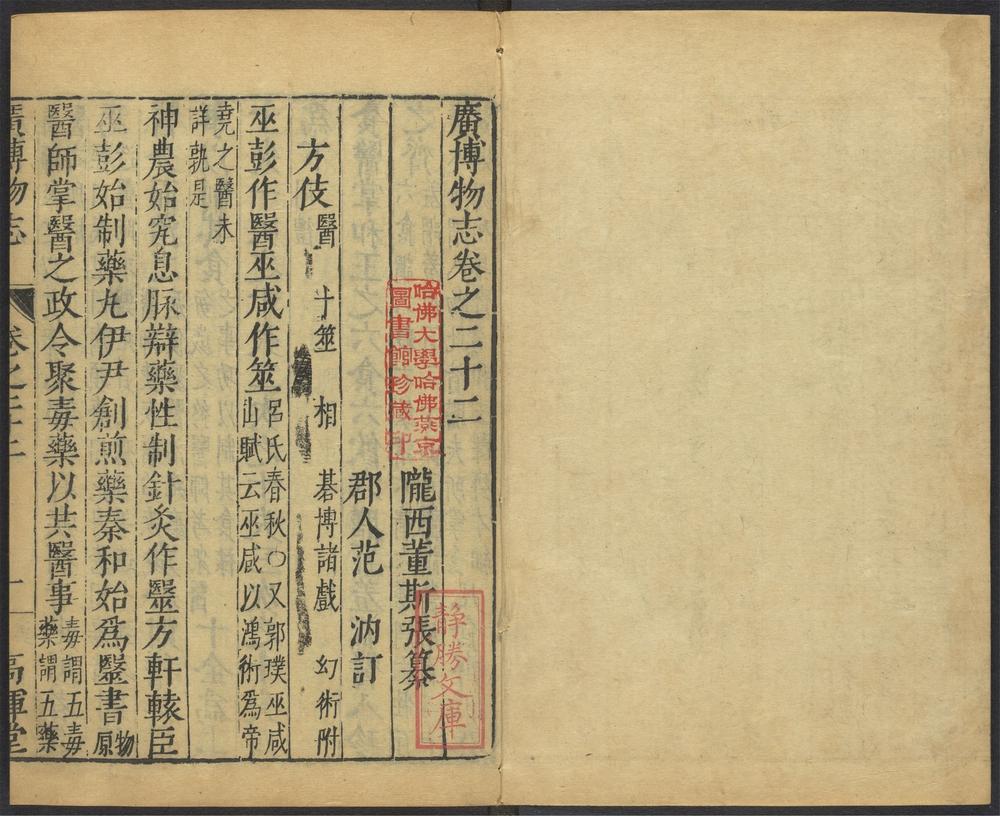 廣博物志卷之二十二
隴西董斯張纂
郡人范汭訂
方伎 醫 卜筮 相 碁博諸戲 幻術附
巫彭作醫巫咸作筮 呂氏春秋〇又郭璞巫咸
山賦云巫咸以鴻術爲帝
堯之醫未
詳孰是
神農始究息脉辯藥性制針灸作毉方軒轅臣
巫彭始制藥丸伊尹創煎藥秦和始爲毉書 物
原
醫師掌醫之政令聚毒藥以共醫事 毒謂五毒
藥謂五藥
廣博物志 卷之二十二 一 高暉堂
哈佛大學哈佛燕京
圖書館珍藏印
靜勝文庫